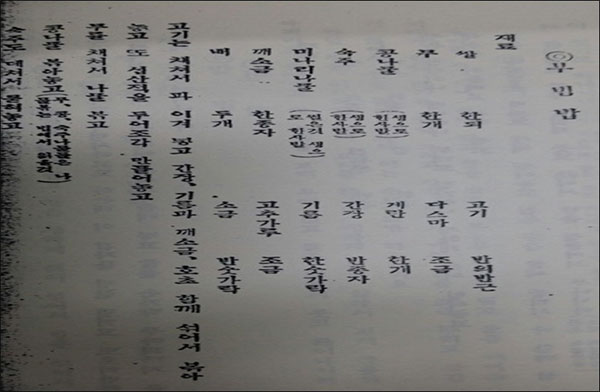 ◎부빔밥
재료
쌀 한되 고기 반의반근
무 한개 다스마 조금
콩나물 (생으로 한사발) 계란 한개
숙주 (생으로 한사발) 간장 반종자
미나리나물 (썰은것 생으로 한사발) 기름 한소가락
깨소금 한종자 고추가루 조금
배 두개 소금 반소가락
고기는 채쳐서 파 이겨 넣고 간장, 기름과 깨소금, 호초 함께 섞어서 볶아
놓고 또 산산적을 두어조각 만들어놓고
무를 채쳐서 나물 볶고
콩나물 볶아놓고 (무, 콩, 숙주나물등은 나물하는 법에서
숙주도 데쳐서